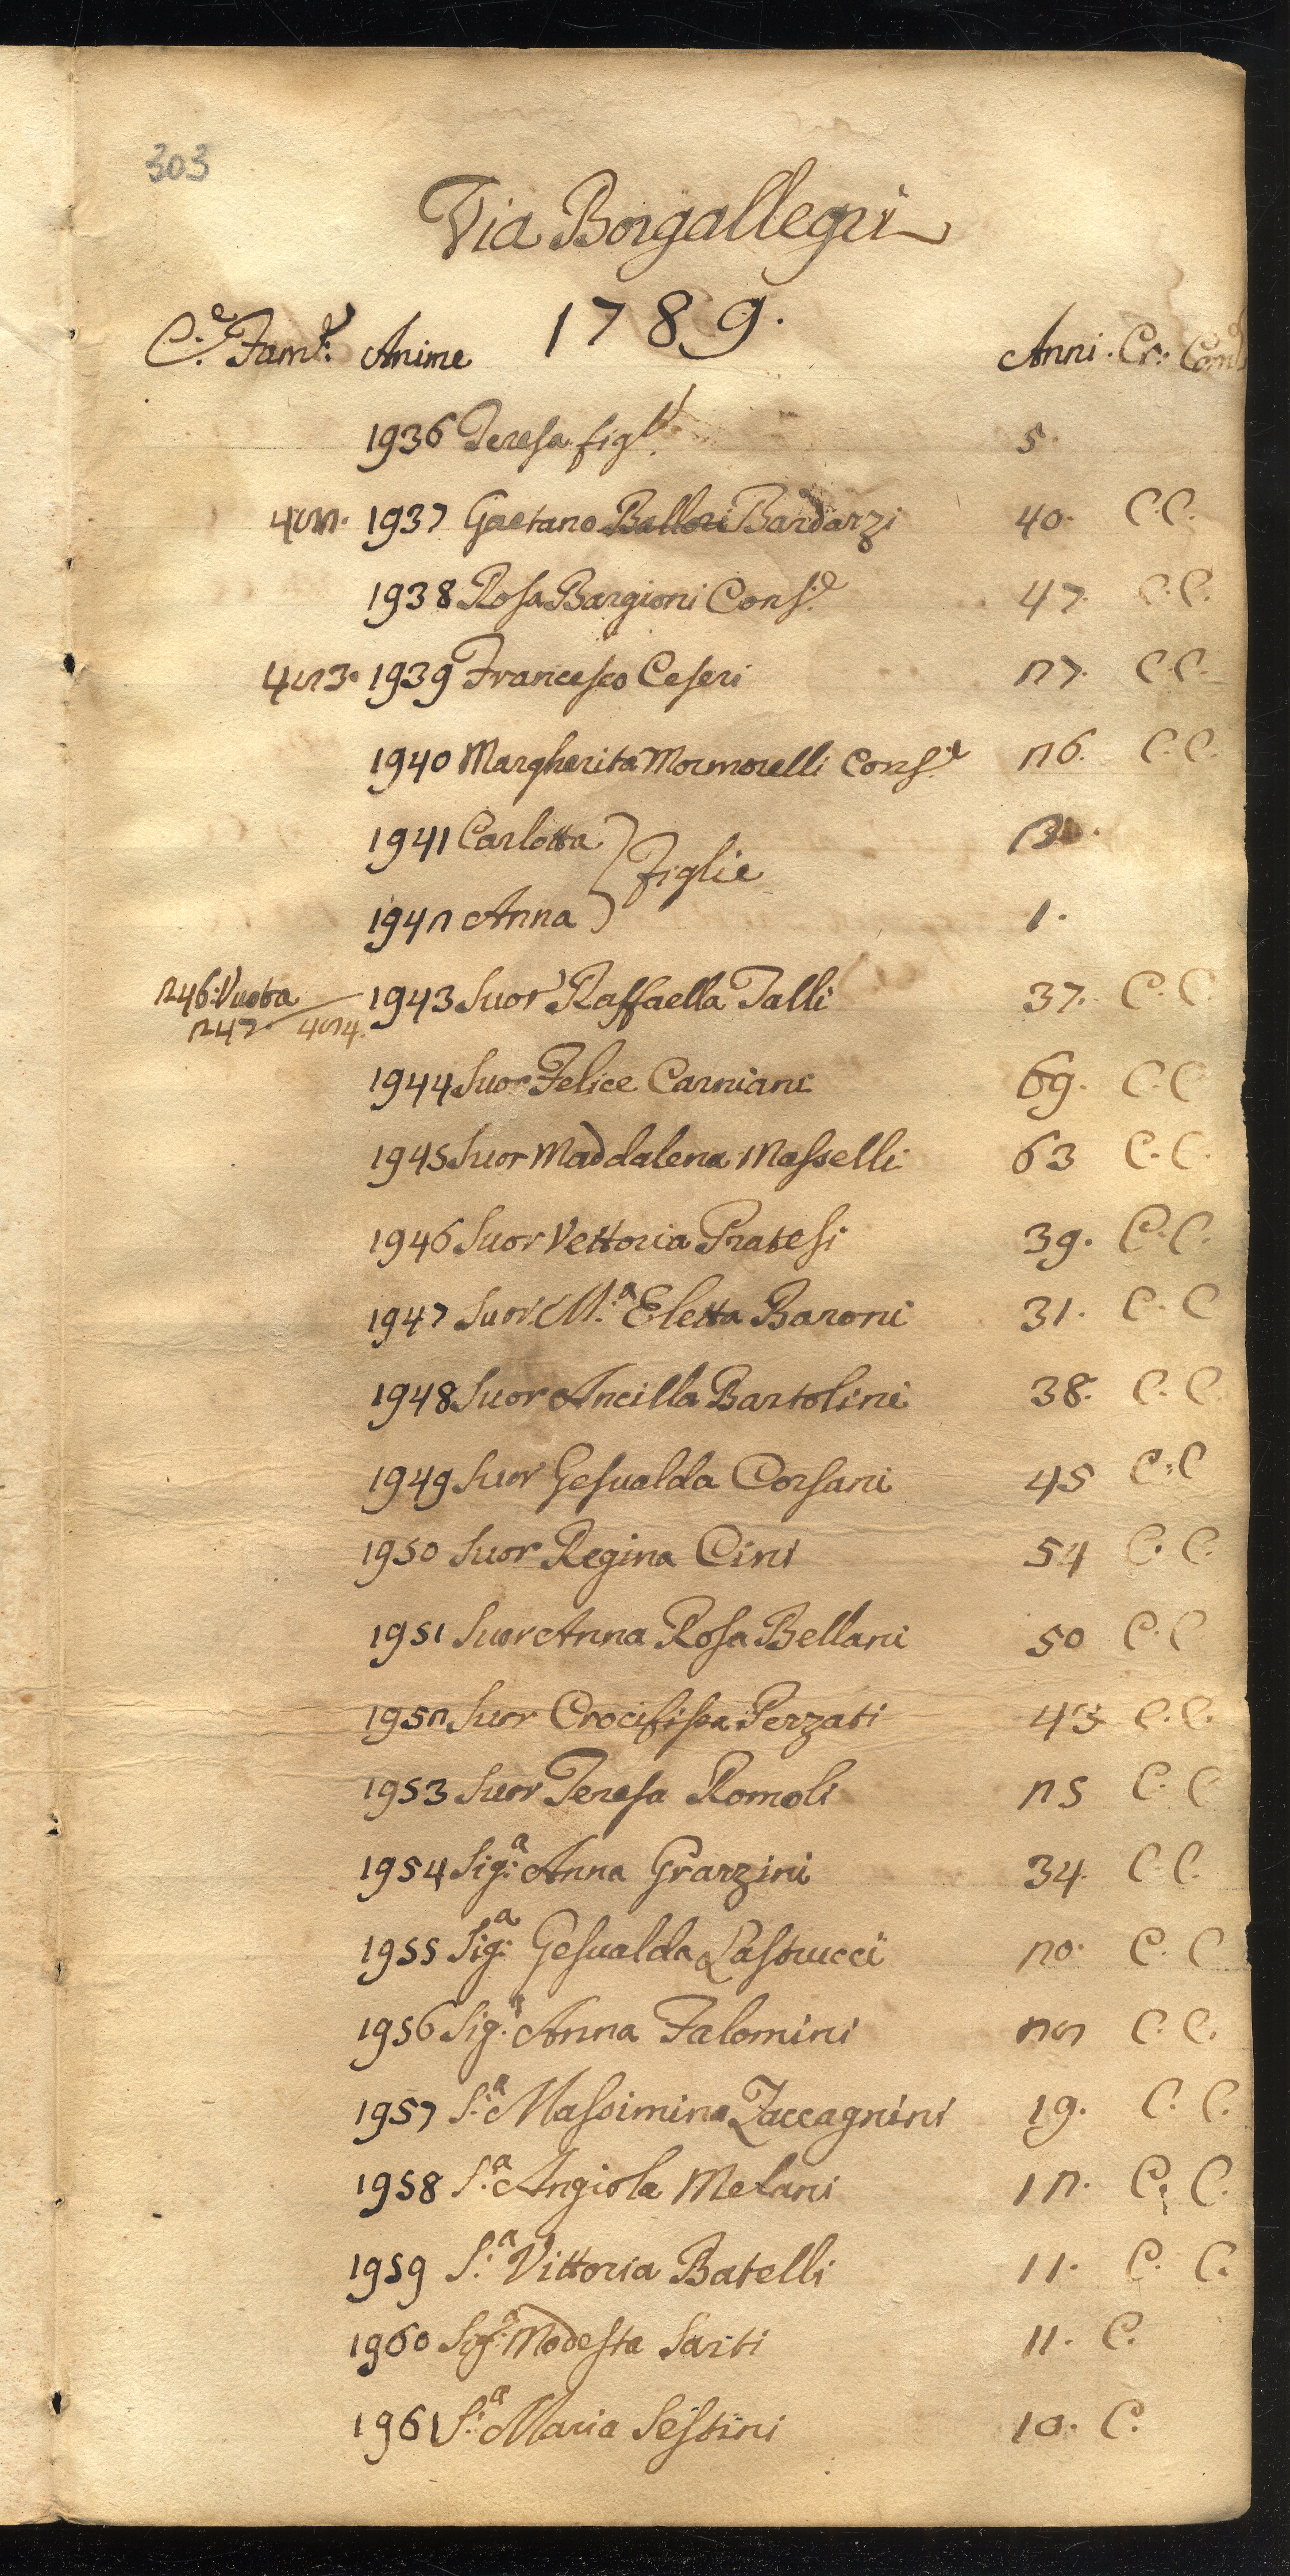 303
Via Borgallegri
1789.
C.e Fam.e Anime Anni. Cr. Com.
1936 Teresa figl.a 5.
422. 1937 Gaetano Ballori Bardazzi 40. C. C.
1938 Rosa Bargioni Cons.e 47. C. C.
423. 1939 Francesco Ceseri 27. C. C.
1940 Margherita Mormorelli Cons.e 26. C. C.
1941 Carlotta
Figlie
1942 Anna 1.
246. Vuota 1943 Suor Raffaella Talli 37. C. C.
247 424.
1944 Suor Felice Carniani 69. C. C
1945 Suor Maddalena Masselli 63 C. C.
1946 Suor Vettoria Pratesi 39. C. C.
1947 Suor M.a Eletta Baroni 31. C. C
1948 Suor Ancilla Bartolini 38. C. C
1949 Suor Gesualda Corsani 45 C. C
1950 Suor Regina Cini 54 C. C.
1951 Suor Anna Rosa Bellani 50 C. C
1952 Suor Crocifissa Pezzati 43 C. C.
1953 Suor Teresa Romoli 25 C. C
1954 Sig.a Anna Grazzini 34. C. C.
1955 Sig.a Gesualda Lastrucci 20. C. C
1956 Sig.a Anna Falomini 22 C. C.
1957 S.a Massimina Zaccagnini 19. C. C.
1958 S.a Angiola Melani 12. C. C.
1959 S.a Vittoria Batelli 11. C. C.
1960 Sig.a Modesta Sarti 11. C.
1961 S.a Maria Sestini 10. C.